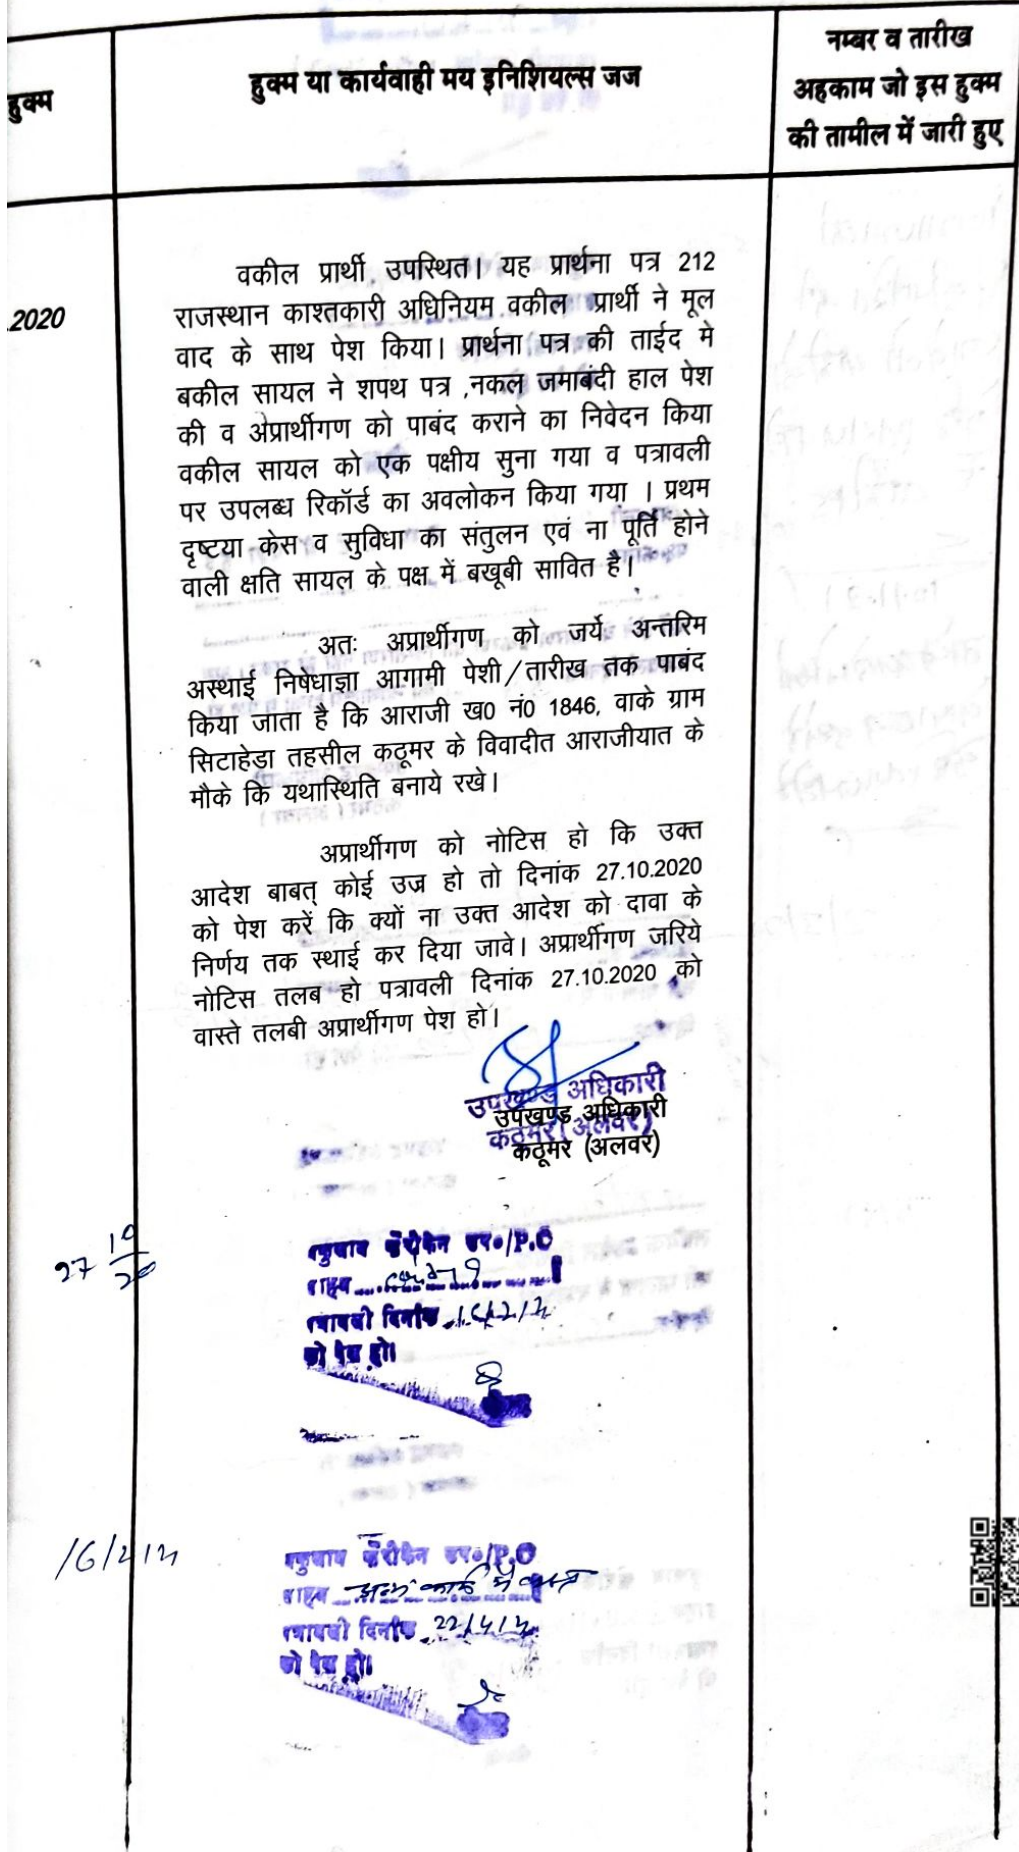 हुक्म
हुक्म या कार्यवाही मय इनिशियल्स जज
नम्बर व तारीख
अहकाम जो इस हुक्म
की तामील में जारी हुए
.2020
वकील प्रार्थी उपस्थित। यह प्रार्थना पत्र 212
राजस्थान काश्तकारी अधिनियम वकील प्रार्थी ने मूल
वाद के साथ पेश किया। प्रार्थना पत्र की ताईद मे
बकील सायल ने शपथ पत्र ,नकल जमाबंदी हाल पेश
की व अप्रार्थीगण को पाबंद कराने का निवेदन किया
वकील सायल को एक पक्षीय सुना गया व पत्रावली
पर उपलब्ध रिकॉर्ड का अवलोकन किया गया । प्रथम
दृष्टया केस व सुविधा का संतुलन एवं ना पूर्ति होने
वाली क्षति सायल के पक्ष में बखूबी सावित है।
अतः अप्रार्थीगण को जर्ये अन्तरिम
अस्थाई निषेधाज्ञा आगामी पेशी/तारीख तक पाबंद
किया जाता है कि आराजी ख0 नं0 1846, वाके ग्राम
सिटाहेडा तहसील कठूमर के विवादीत आराजीयात के
मौके कि यथास्थिति बनाये रखे।
अप्रार्थीगण को नोटिस हो कि उक्त
आदेश बाबत् कोई उज्र हो तो दिनांक 27.10.2020
को पेश करें कि क्यों ना उक्त आदेश को दावा के
निर्णय तक स्थाई कर दिया जावे। अप्रार्थीगण जरिये
नोटिस तलब हो पत्रावली दिनांक 27.10.2020 को
वास्ते तलबी अप्रार्थीगण पेश हो।
उपखण्ड अधिकारी
कठूमर (अलवर)
उपखण्ड अधिकारी
कठूमर (अलवर)
27 10/20
P.O
दिनांक
को पेश हो।
P.O
अन्य कार्य में व्यस्त
दिनांक 22/4/21
को पेश हो।